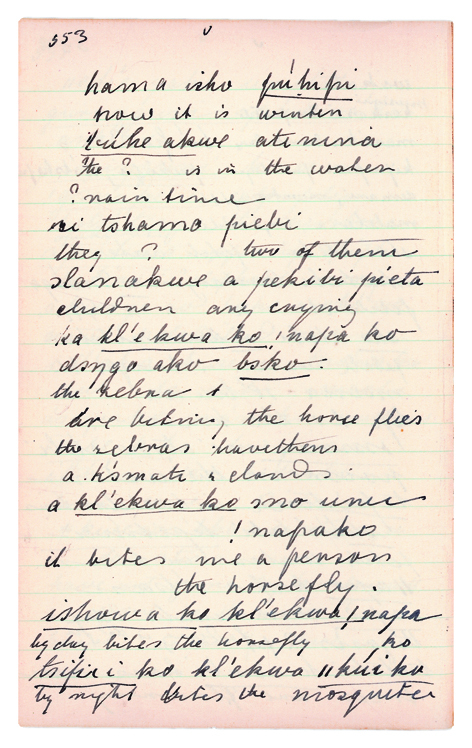 553
hama isho púhipi
now it is winter
túhe akwe atinina
the ? is in the water
? rain time
ri tshamo piebi
they ? two of them
slanakwe a pekibi pieta
children any crying
ka kl'ekwa ko !napa ko
dsygo ako bsko.
the zebra
are biting, the horse flies
the zebras
a clouds
a kl'ekwa ko sno unu
!napako
it bites me a person
the horsefly.
ishowa ko kl'ekwa !napa
by day bites the horsefly ko
tsifiri ko kl'ekwa !!kúiko
by night bites the mosquitee